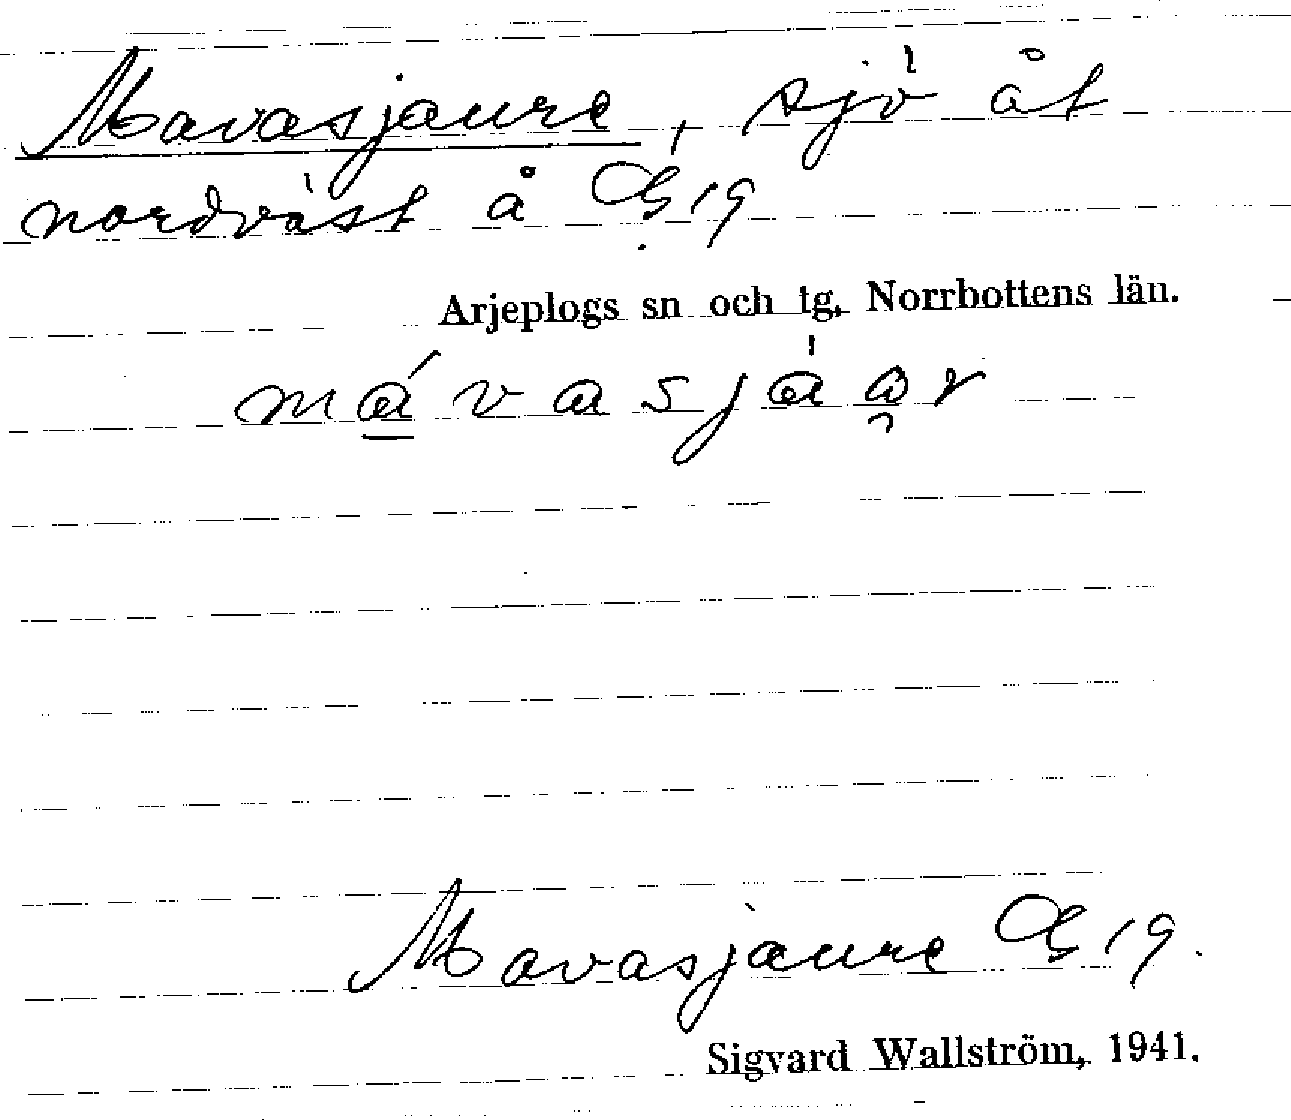 Mavasjaure, sjö åt
nordväst å G 19
Arjeplogs sn och tg, Norrbottens län.
mávasjåar
Mavasjaure G 19.
Sigvard Wallström, 1941.